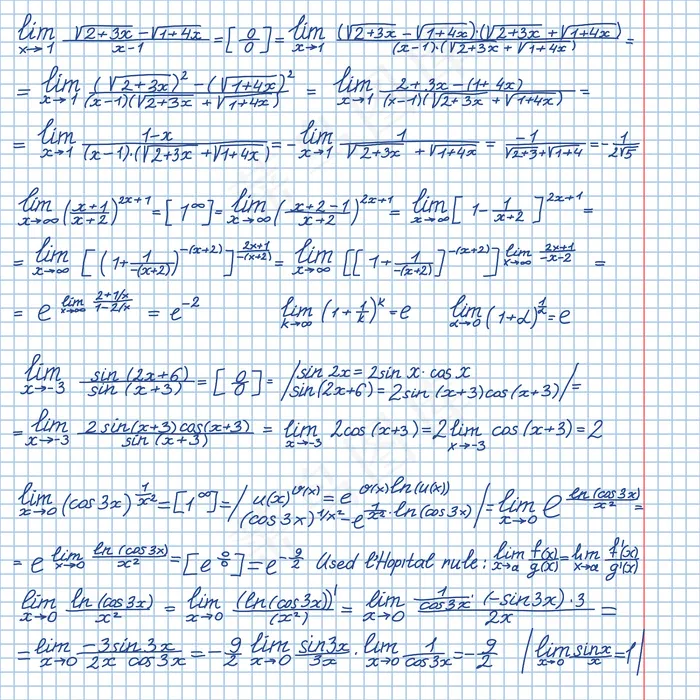 lim x→1 (√(2+3x) − √(1+4x))/(x−1) = [0/0] = lim x→1 ((√(2+3x) − √(1+4x))·(√(2+3x) + √(1+4x)))/((x−1)·(√(2+3x) + √(1+4x))) =
= lim x→1 ((√(2+3x))² − (√(1+4x))²)/((x−1)(√(2+3x) + √(1+4x))) = lim x→1 (2+3x−(1+4x))/((x−1)(√(2+3x) + √(1+4x))) =
= lim x→1 (1−x)/((x−1)·(√(2+3x) + √(1+4x))) = −lim x→1 1/(√(2+3x) + √(1+4x)) = −1/(√(2+3) + √(1+4)) = −1/(2√5)
lim x→∞ ((x+1)/(x+2))^(2x+1) = [1^∞] = lim x→∞ ((x+2−1)/(x+2))^(2x+1) = lim x→∞ [1 − 1/(x+2)]^(2x+1) =
= lim x→∞ [(1 + 1/(−(x+2)))^(−(x+2))]^((2x+1)/(−(x+2))) = lim x→∞ [[1 + 1/(−(x+2))]^(−(x+2))]^(lim x→∞ (2x+1)/(−x−2)) =
= e^(lim x→∞ (2+1/x)/(1−2/x)) = e^(−2) lim k→∞ (1+1/k)^k = e lim α→0 (1+α)^(1/α) = e
lim x→−3 sin(2x+6)/sin(x+3) = [0/0] = /sin 2x = 2sin x · cos x
sin(2x+6) = 2sin(x+3)cos(x+3)/ =
= lim x→−3 2sin(x+3)cos(x+3)/sin(x+3) = lim x→−3 2cos(x+3) = 2 lim x→−3 cos(x+3) = 2
lim x→0 (cos3x)^(1/x²) = [1^∞] = /u(x)^(v(x)) = e^(v(x)ln(u(x)))
(cos3x)^(1/x²) − e^(1/x² · ln(cos3x))/ = lim x→0 e^(ln(cos3x)/x²) =
= e^(lim x→0 ln(cos3x)/x²) = [e^(0/0)] = e^(−9/2) Used l'Hopital rule: lim x→a f(x)/g(x) = lim x→a f'(x)/g'(x)
lim x→0 ln(cos3x)/x² = lim x→0 (ln(cos3x))'/(x²)' = lim x→0 (1/cos3x · (−sin3x)·3)/2x =
= lim x→0 (−3sin3x)/(2x cos3x) = −9/2 lim x→0 sin3x/3x · lim x→0 1/cos3x = −9/2 |lim x→0 sinx/x = 1|